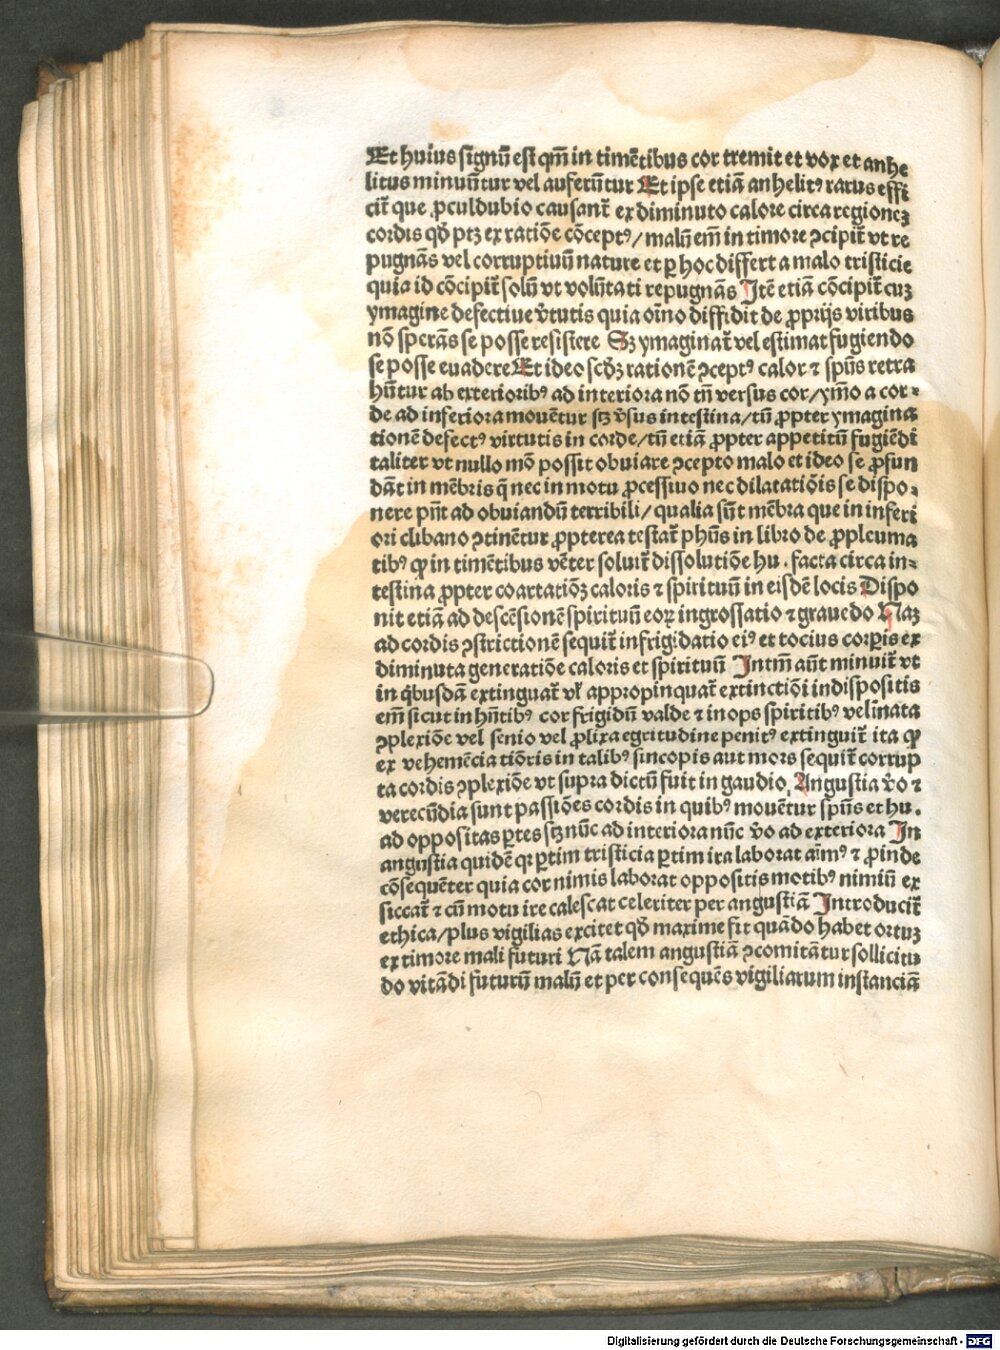 Et huius signū est qm̄ in timētibus cor tremit et vox et anhe
litus minuūtur vel auferūtur Et ipse etiā anhelitꝰ rarus effi
cit̄ que ꝓculdubio causant̄ ex diminuto calore circa regioneꝫ
cordis qd̄ ptꝫ ex ratiōe cōceptꝰ / malū em̄ in timore ꝯcipit̄ vt re
pugnās vel corruptiuū nature et ꝑ hoc differt a malo tristicie
quia id cōcipit̄ solū vt volūtati repugnās Itē etiā cōcipit̄ cuꝫ
ymagine defectiue v̄tutis quia oīno diffidit de ꝓprijs viribus
nō sperās se posse resistere Sꝫ ymaginat̄ vel estimat fugiendo
se posse euadere Et ideo scd̄ꝫ rationē ꝯceptꝰ calor ⁊ spūs retra
hūtur ab exterioribꝰ ad interiora nō tn̄ versus cor / ymo a cor-
de ad inferiora mouētur sꝫ v̄sus intestina / tū ꝓpter ymagina
tionē defectꝰ virtutis in corde / tū etiā ꝓpter appetitū fugiēdi
taliter vt nullo mō possit obuiare ꝯcepto malo et ideo se ꝓfun
dāt in mēbris q̄ nec in motu ꝓcessiuo nec dilatatiōis se dispo-
nere pn̄t ad obuiandū terribili / qualia sūt mēbra que in inferi
ori clibano ꝯtinētur ꝓpterea testat̄ phūs in libro de ꝓpleuma
tibꝰ ꝙ in timētibus vēter soluit̄ dissolutiōe hu . facta circa in-
testina ꝓpter coartatiōꝫ caloris ⁊ spirituū in eisdē locis Dispo
nit etiā ad descēsionē spirituū eoꝝ ingrossatio ⁊ grauedo Naꝫ
ad cordis ꝯstrictionē sequit̄ infrigidatio eiꝰ et tocius corꝑis ex
diminuta generatiōe caloris et spirituū Intm̄ aūt minuit̄ vt
in q̇busdā extinguat̄ vl̄ appropinquat̄ extinctiōi indispositis
em̄ sicut in hn̄tibꝰ cor frigidū valde ⁊ inops spiritibꝰ vel īnata
ꝯplexiōe vel senio vel ꝓlixa egritudine penitꝰ extinguit̄ ita ꝙ
ex vehemēcia tiōris in talibꝰ sincopis aut mors sequit̄ corrup
ta cordis ꝯplexiōe vt supra dictū fuit in gaudio. Angustia v̄o ⁊
verecūdia sunt passiōes cordis in quibꝰ mouētur spūs et hu .
ad oppositas ꝑtes sꝫ nūc ad interiora nūc v̄o ad exteriora In
angustia quidē qꝛ ꝑtim tristicia ꝑtim ira laborat aīmꝰ ⁊ ꝓinde
cōsequēter quia cor nimis laborat oppositis motibꝰ nimiū ex
siccat̄ ⁊ cū motu ire calescat celeriter per angustiā Introducit̄
ethica / plus vigilias excitet qd̄ maxime fit quādo habet ortuꝫ
ex timore mali futuri Nā talem angustiā ꝯcomitātur sollicitu
do vitādi futurū malū et per consequēs vigiliarum instanciā
Digitalisierung gefördert durch die Deutsche Forschungsgemeinschaft - DFG